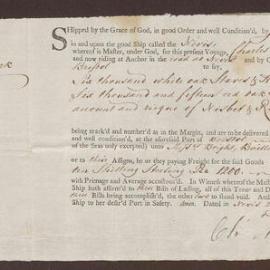 SHipped by the Grace of God, in good Order and well Condition'd, by
in and upon the good Ship called the Nevis
whereof is Master, under God, for this present Voyage, Charles
and now riding at Anchor in the road at Nevis and by G
Bristol to say,
Six thousand white oak Staves &
Six thousand and fifteen red oak
amount and risque of Nisbet &
being mark'd and number'd as in the Margin, and are to be deliver'd
and well condition'd, at the aforesaid Port of Bristol
of the Seas only excepted) unto Mess.rs Bright, Baillie
or to their Assigns, he or they paying Freight for the said Goods
ten Shilling Sterling 1200
with Primage and Average accustom'd. In Witness whereof the Master
Ship hath affirm'd to three Bills of Lading, all of this Tenor and D
three Bills being accomplish'd, the other two to stand void. And
Ship to her desir'd Port in Safety. Amen. Dated in Nevis